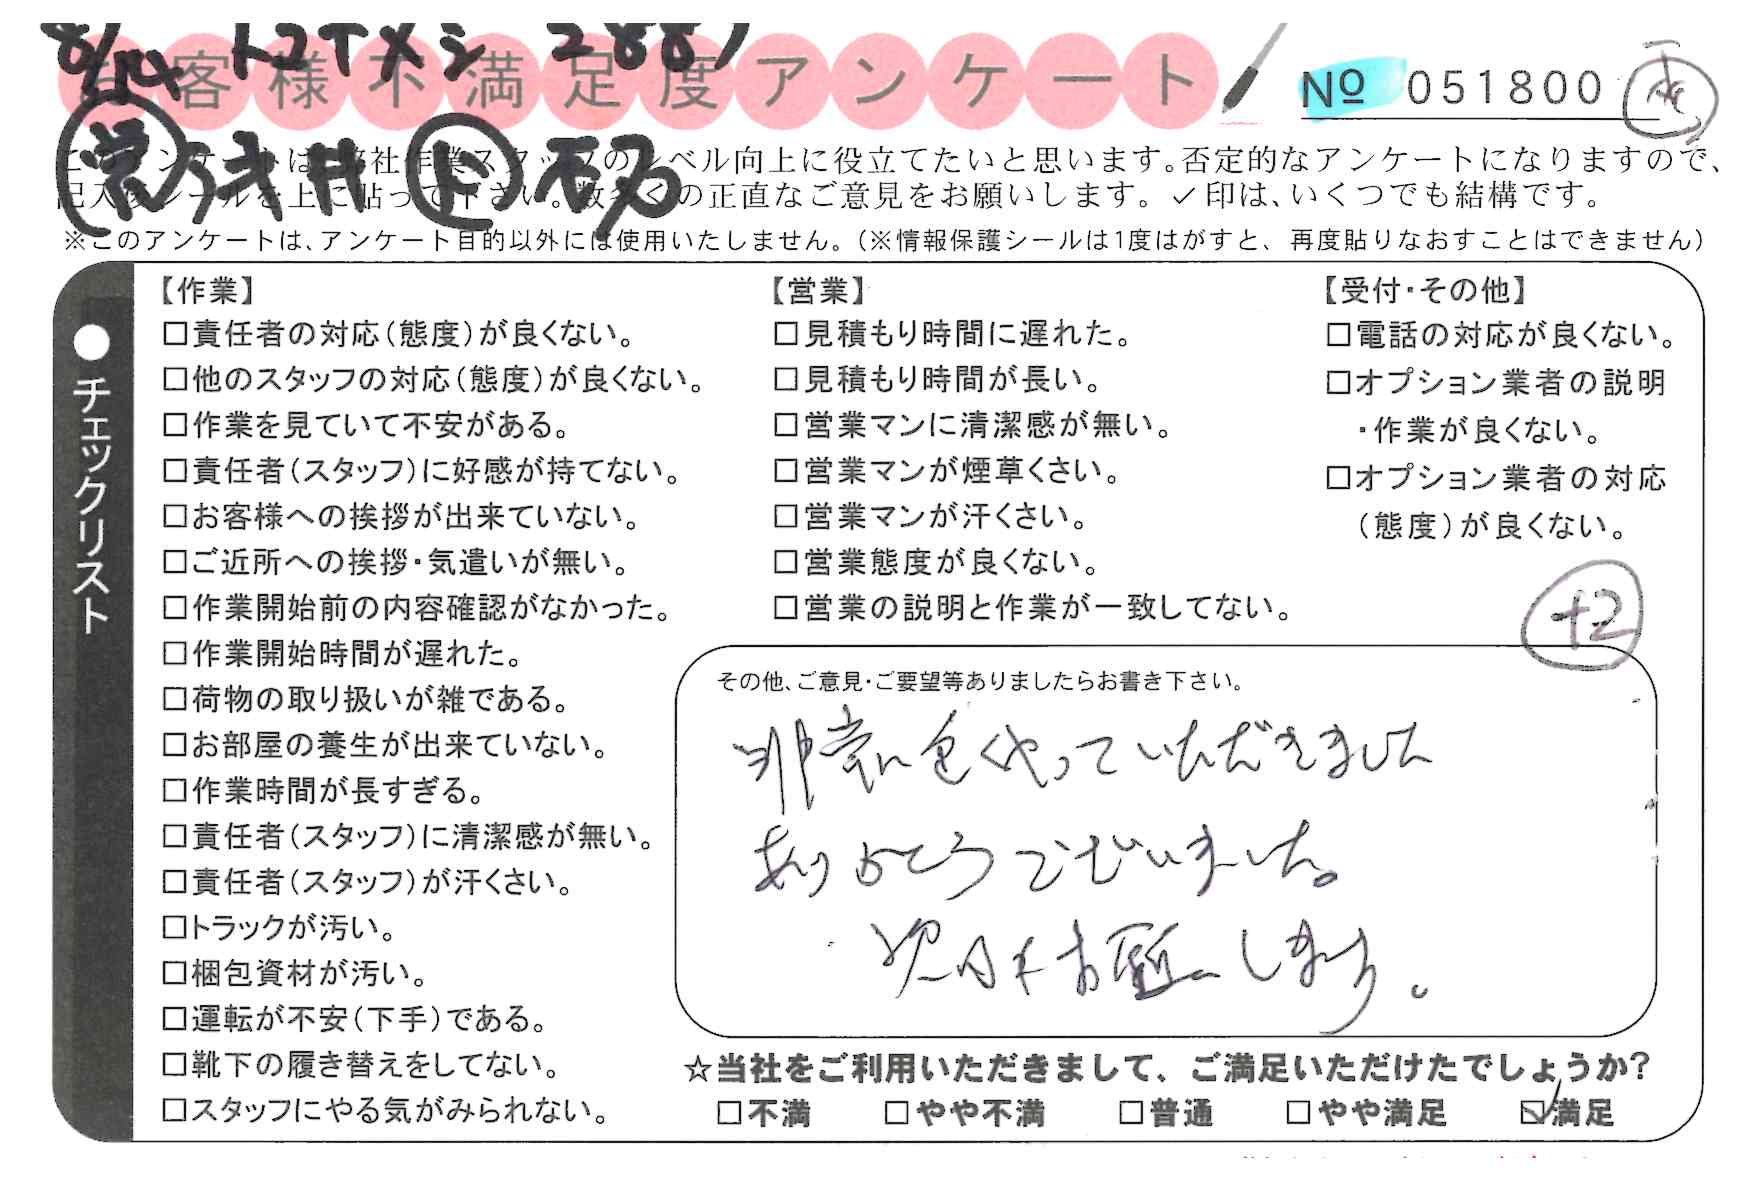 8/14 2887
お客様不満足度アンケート
№ 051800
このアンケートは、弊社作業スタッフのレベル向上に役立てたいと思います。否定的なアンケートになりますので、
記入後シールを上に貼って下さい。数多くの正直なご意見をお願いします。✓印は、いくつでも結構です。
※このアンケートは、アンケート目的以外には使用いたしません。(※情報保護シールは1度はがすと、再度貼りなおすことはできません)
●チェックリスト
【作業】
□責任者の対応(態度)が良くない。
□他のスタッフの対応(態度)が良くない。
□作業を見ていて不安がある。
□責任者(スタッフ)に好感が持てない。
□お客様への挨拶が出来ていない。
□ご近所への挨拶・気遣いが無い。
□作業開始前の内容確認がなかった。
□作業開始時間が遅れた。
□荷物の取り扱いが雑である。
□お部屋の養生が出来ていない。
□作業時間が長すぎる。
□責任者(スタッフ)に清潔感が無い。
□責任者(スタッフ)が汗くさい。
□トラックが汚い。
□梱包資材が汚い。
□運転が不安(下手)である。
□靴下の履き替えをしてない。
□スタッフにやる気がみられない。
【営業】
□見積もり時間に遅れた。
□見積もり時間が長い。
□営業マンに清潔感が無い。
□営業マンが煙草くさい。
□営業マンが汗くさい。
□営業態度が良くない。
□営業の説明と作業が一致してない。
【受付・その他】
□電話の対応が良くない。
□オプション業者の説明
・作業が良くない。
□オプション業者の対応
(態度)が良くない。
+2
その他、ご意見・ご要望等ありましたらお書き下さい。
非常に良くやっていただきました
ありがとうございました。
次回もお願いします。
☆当社をご利用いただきまして、ご満足いただけたでしょうか?
□不満 □やや不満 □普通 □やや満足 ☑満足